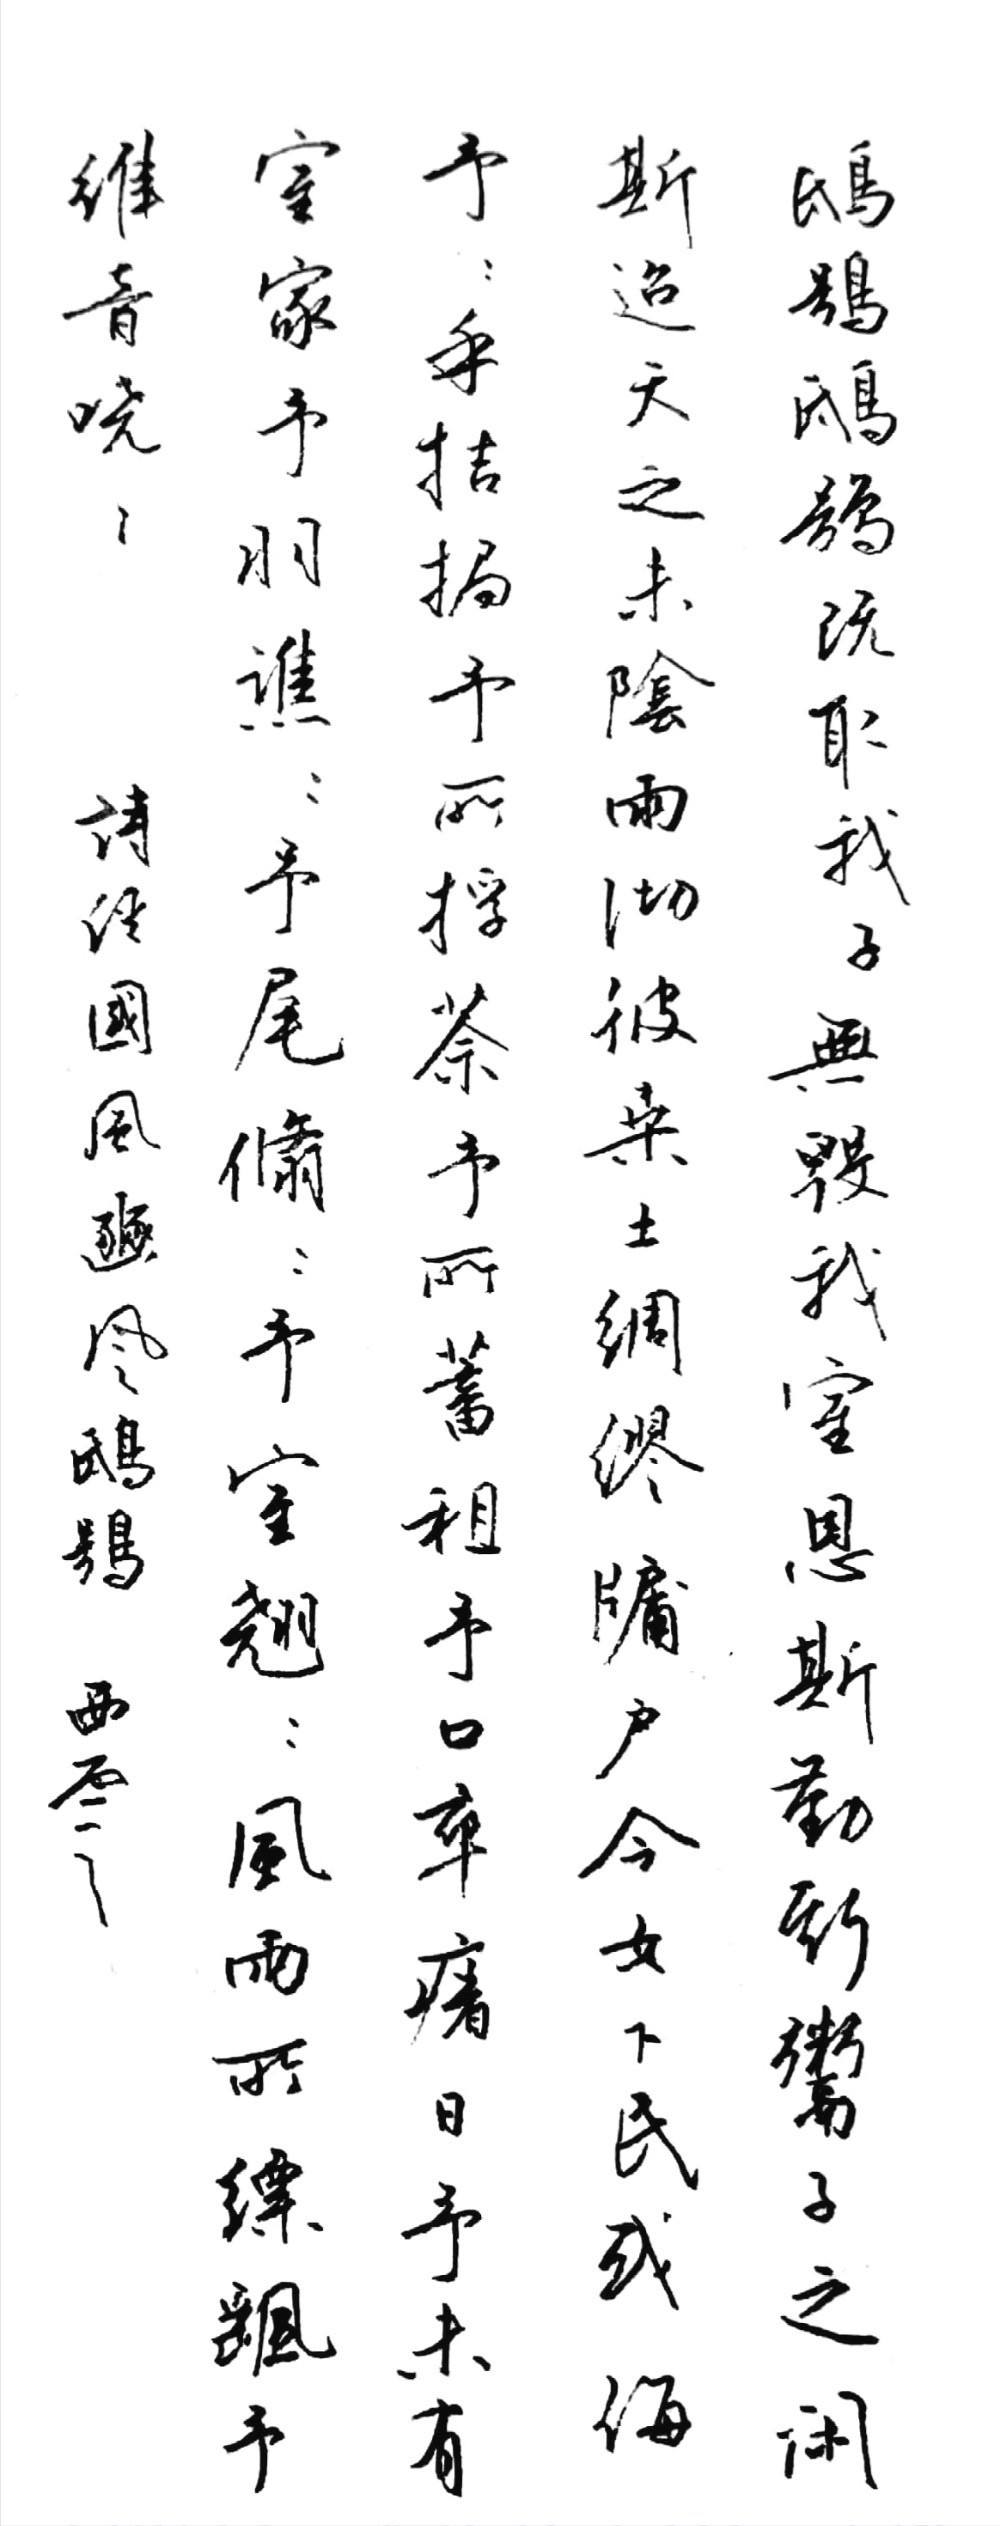 鴟鴞鴟鴞既取我子無毀我室恩斯勤斯鬻子之閔
斯迨天之未陰雨彻彼桑土綢繆牖户今女下民或侮
予〻手拮据予所捋荼予所蓄租予口卒瘏曰予未有
室家予羽譙〻予尾翛〻予室翹〻風雨所縹飄予
維音嘵〻
詩經國風豳风鴟鴞 西雲